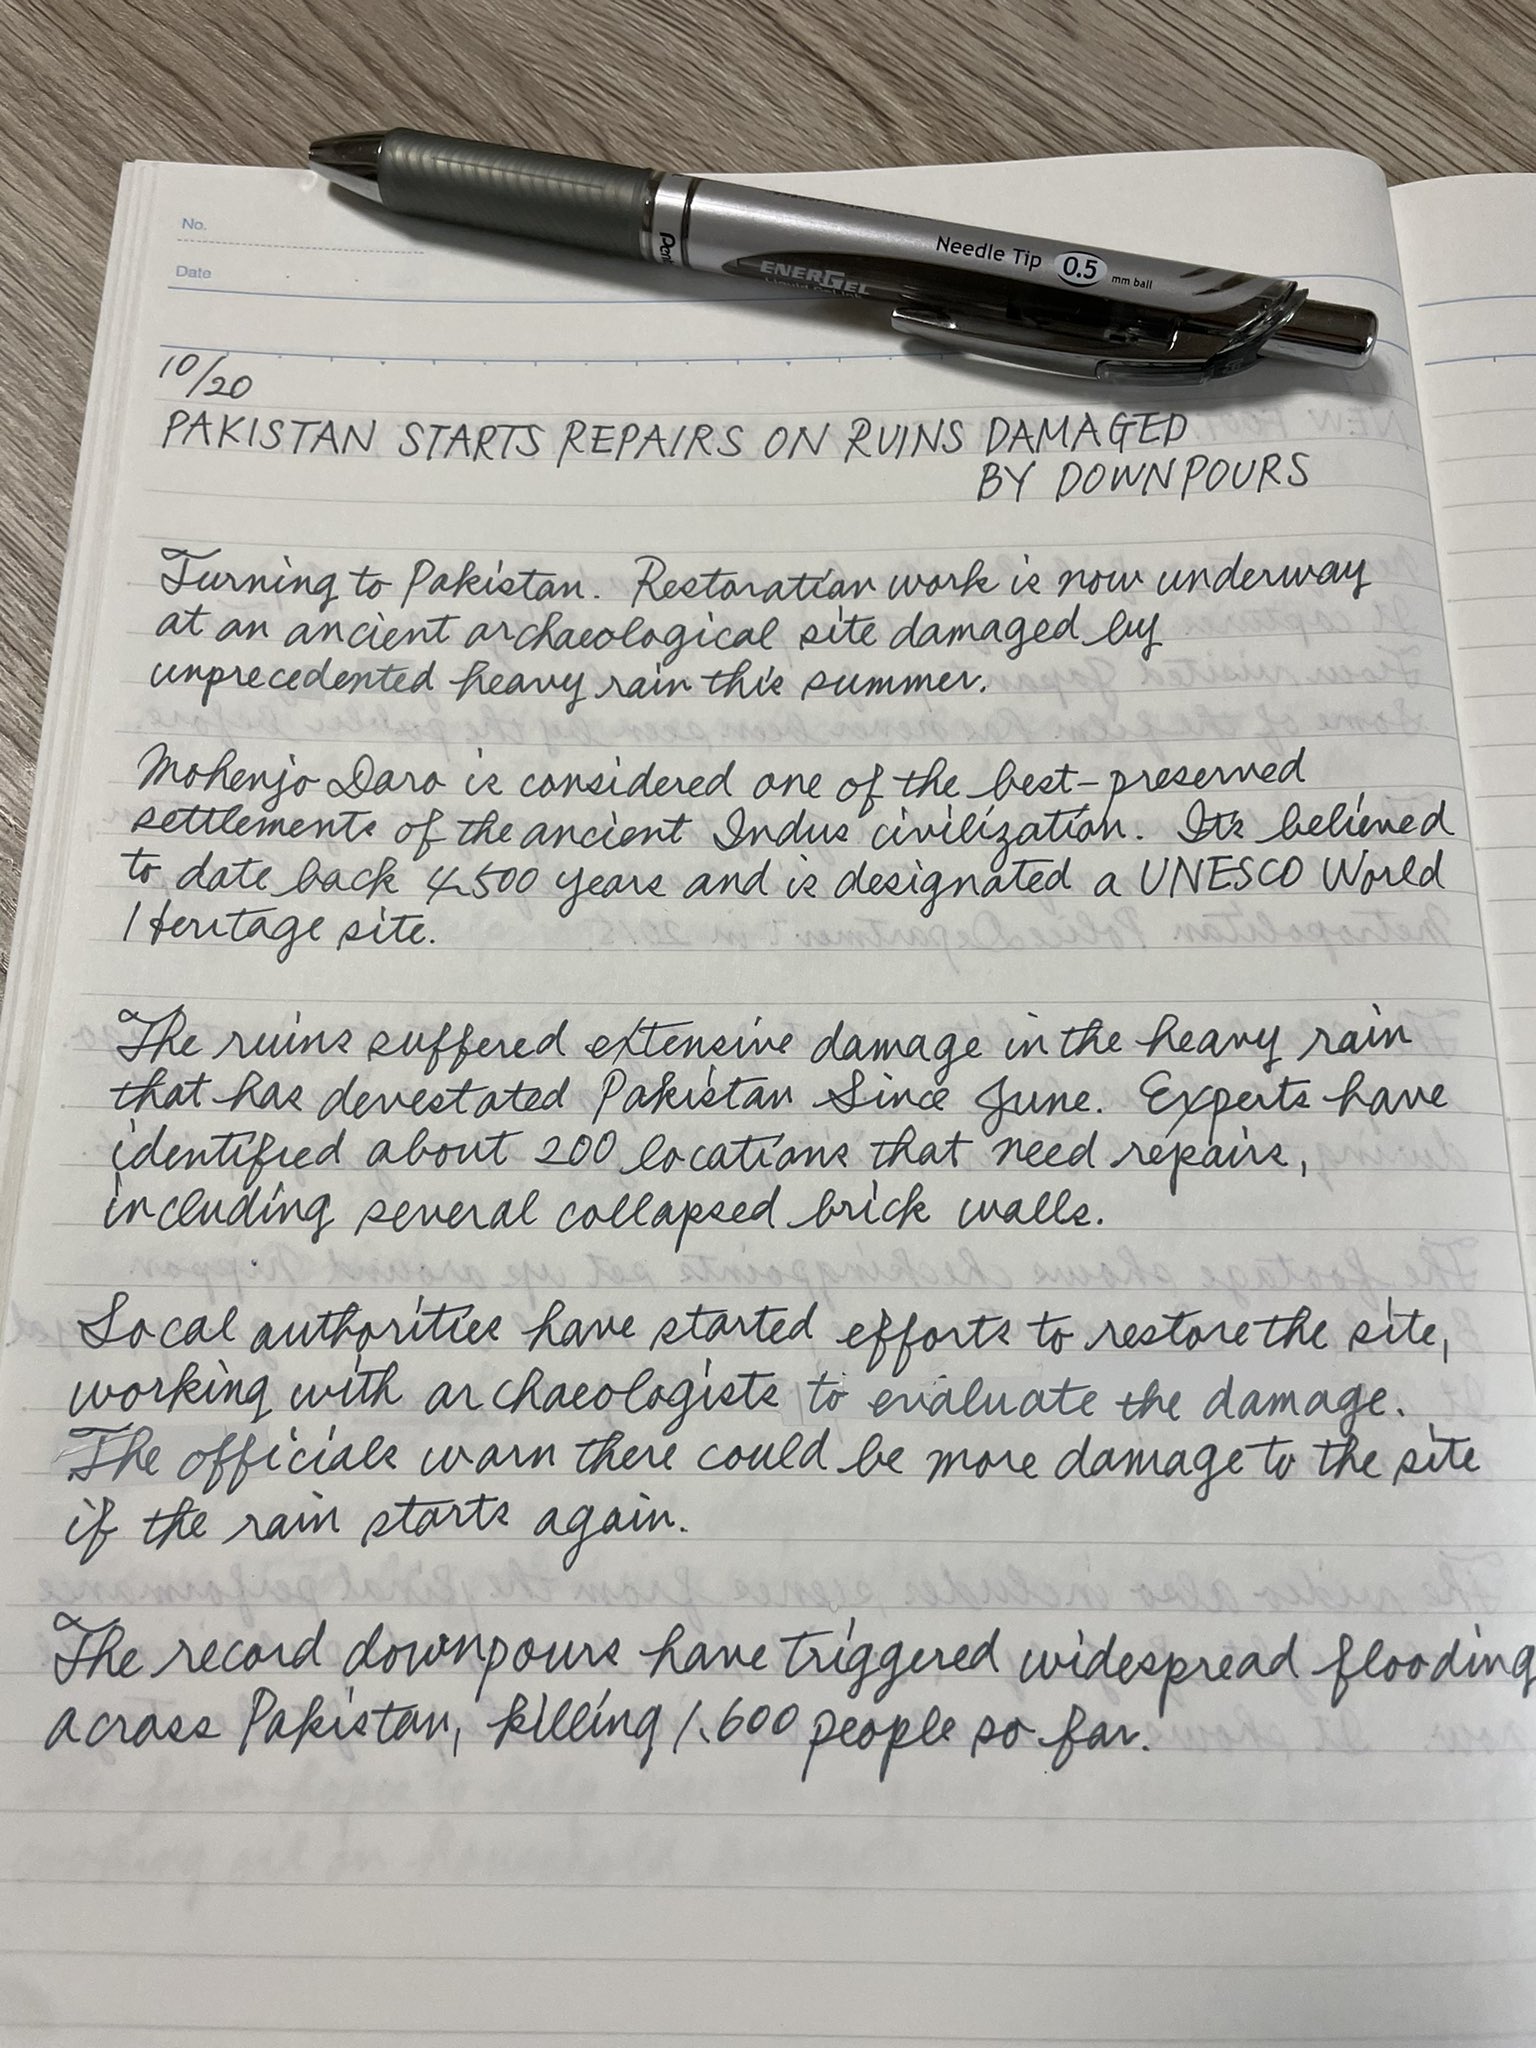 No.
Date
Pent
ENERGEL
Needle Tip 0.5 mm ball
10/20
PAKISTAN STARTS REPAIRS ON RUINS DAMAGED
BY DOWNPOURS
Turning to Pakistan. Restoration work is now underway
at an ancient archaeological site damaged by
unprecedented heavy rain this summer.
Mohenjo Daro is considered one of the best-preserved
settlements of the ancient Indus civilization. It's believed
to date back 4,500 years and is designated a UNESCO World
Heritage site.
The ruins suffered extensive damage in the heavy rain
that has devestated Pakistan since June. Experts have
identified about 200 locations that need repairs,
including several collapsed brick walls.
Local authorities have started efforts to restore the site,
working with archaeologists to evaluate the damage.
The officials warn there could be more damage to the site
if the rain starts again.
The record downpours have triggered widespread flooding
across Pakistan, killing 1,600 people so far.